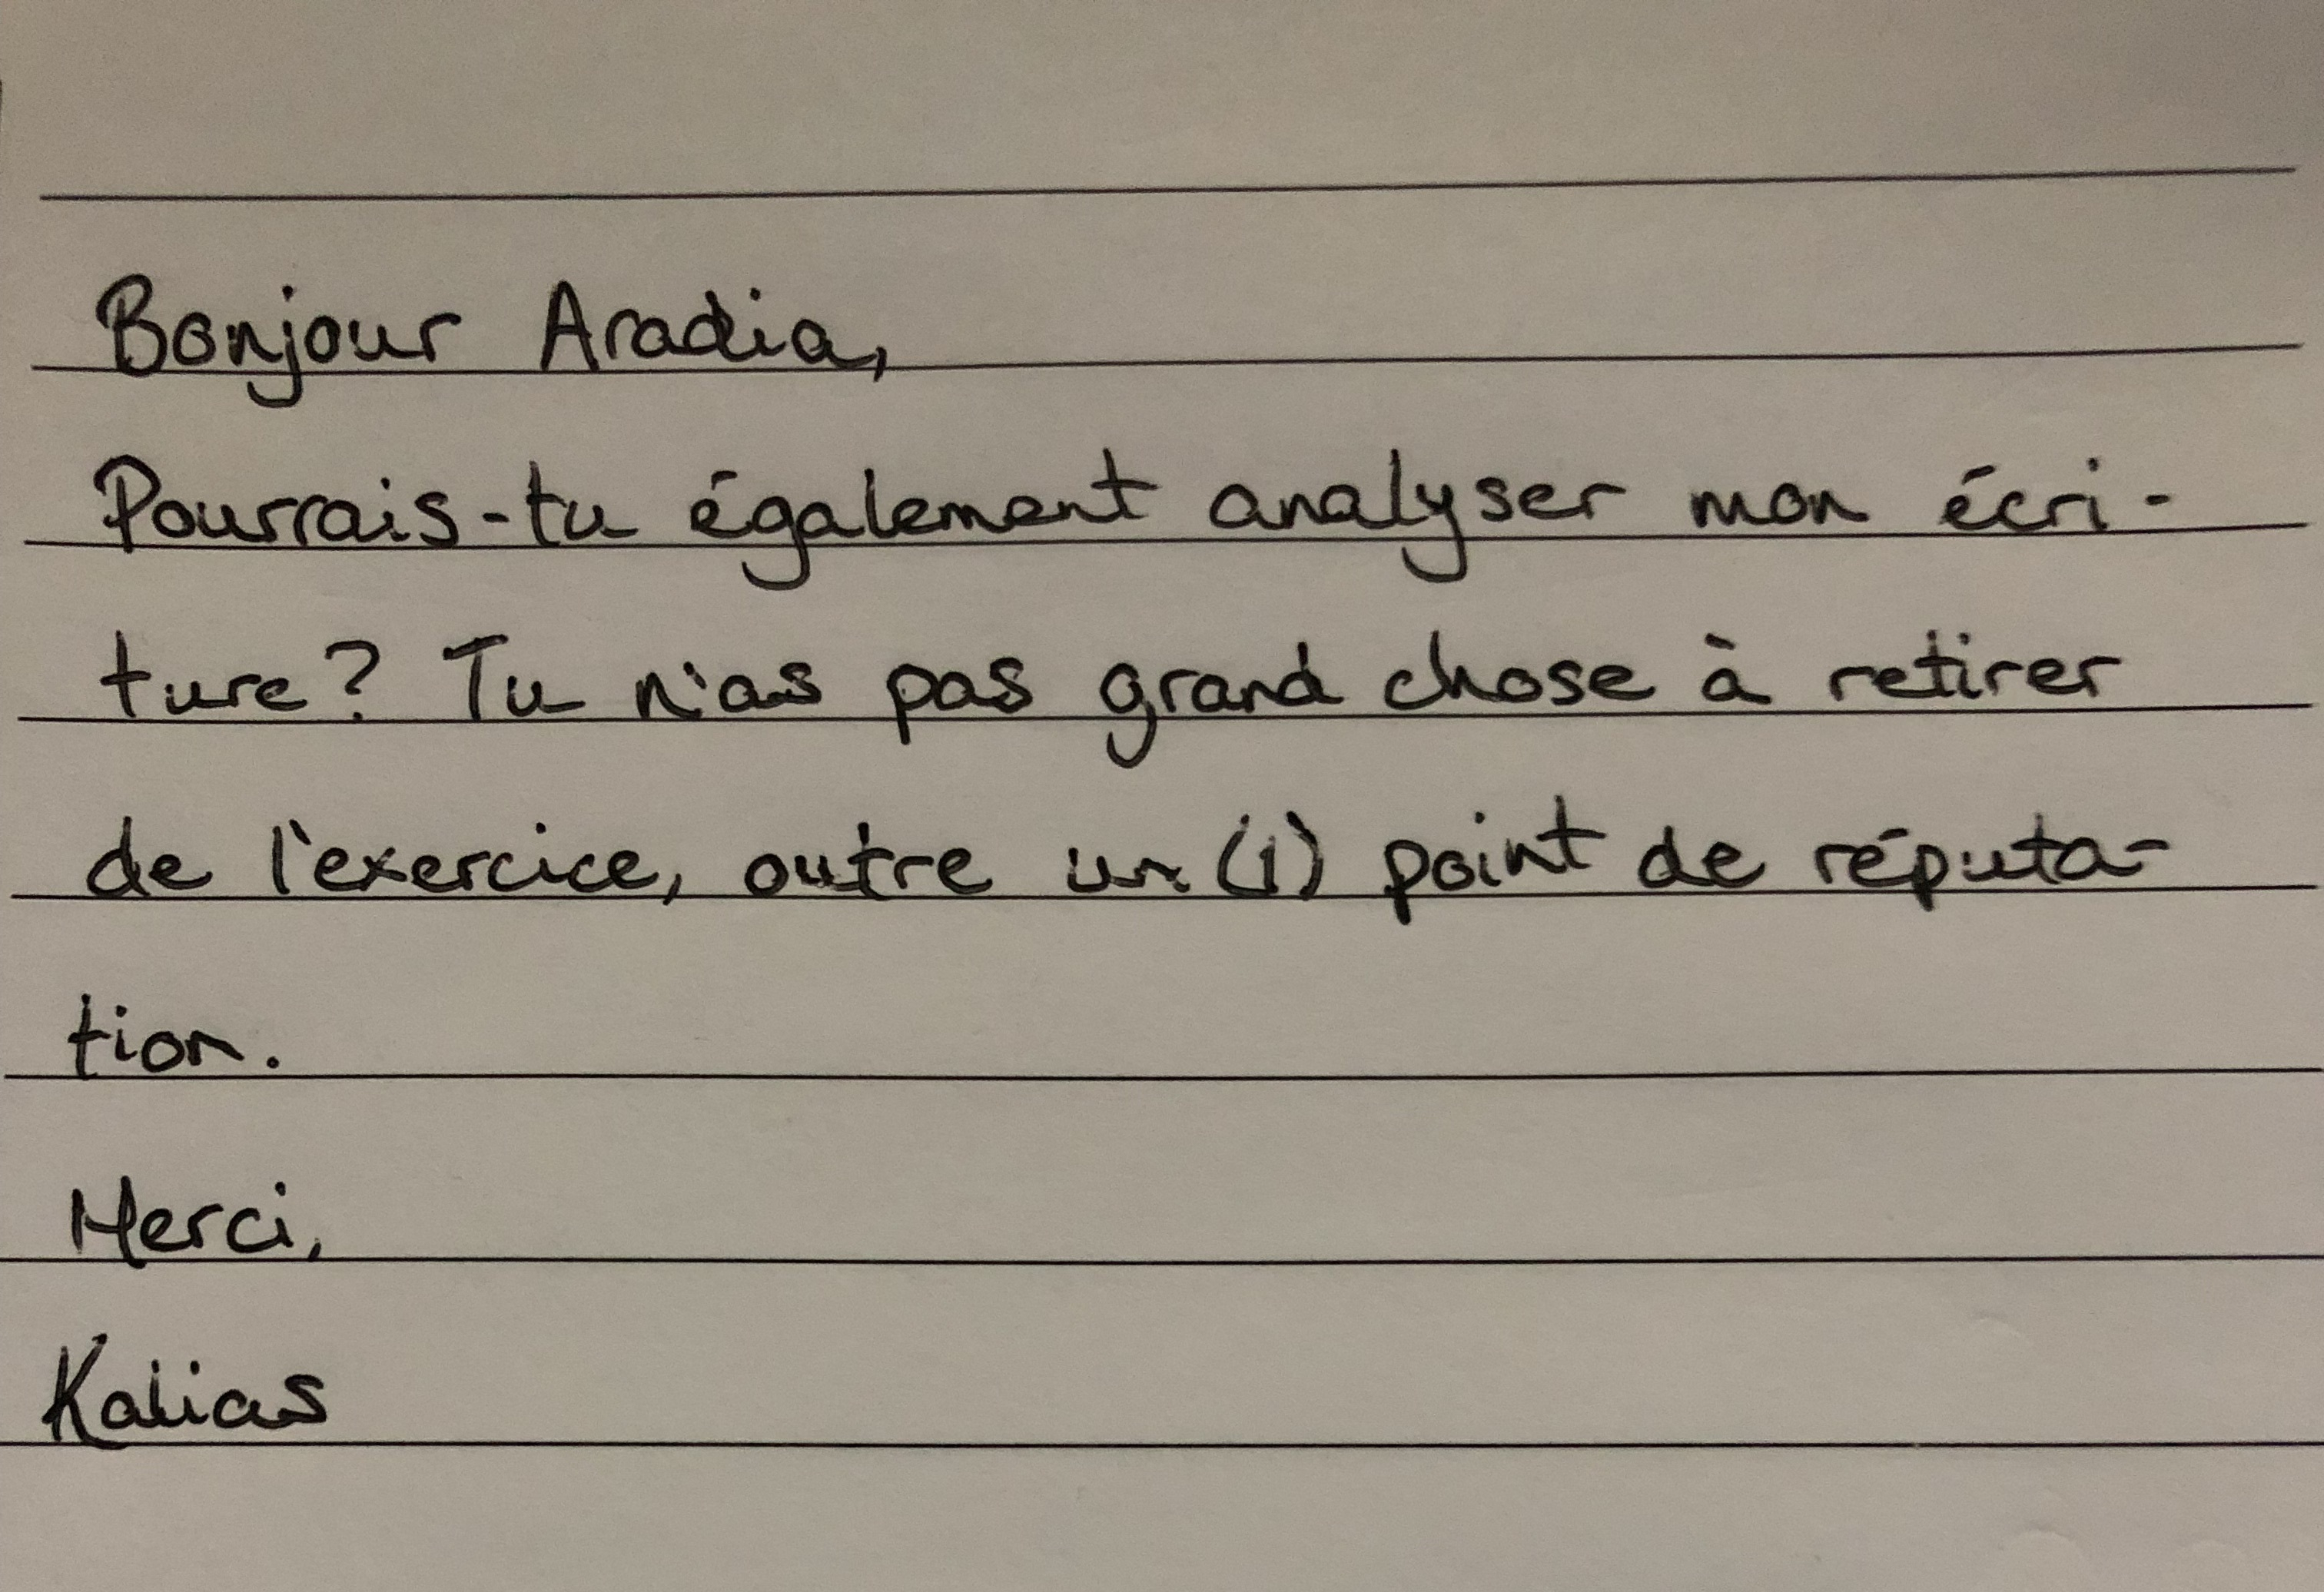 Bonjour Aradia,
Pourrais-tu également analyser mon écri-
ture? Tu n'as pas grand chose à retirer
de l'exercice, outre un (1) point de réputa-
tion.
Merci,
Kalias